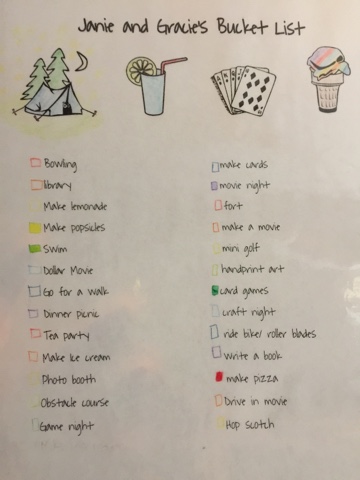 Janie and Gracie's Bucket List
Bowling
library
Make lemonade
Make popsicles
Swim
Dollar Movie
Go for a walk
Dinner picnic
Tea party
Make Ice cream
Photo booth
Obstacle course
Game night
make cards
movie night
fort
make a movie
mini golf
handprint art
card games
craft night
ride bike/ roller blades
Write a book
make pizza
Drive in movie
Hop scotch